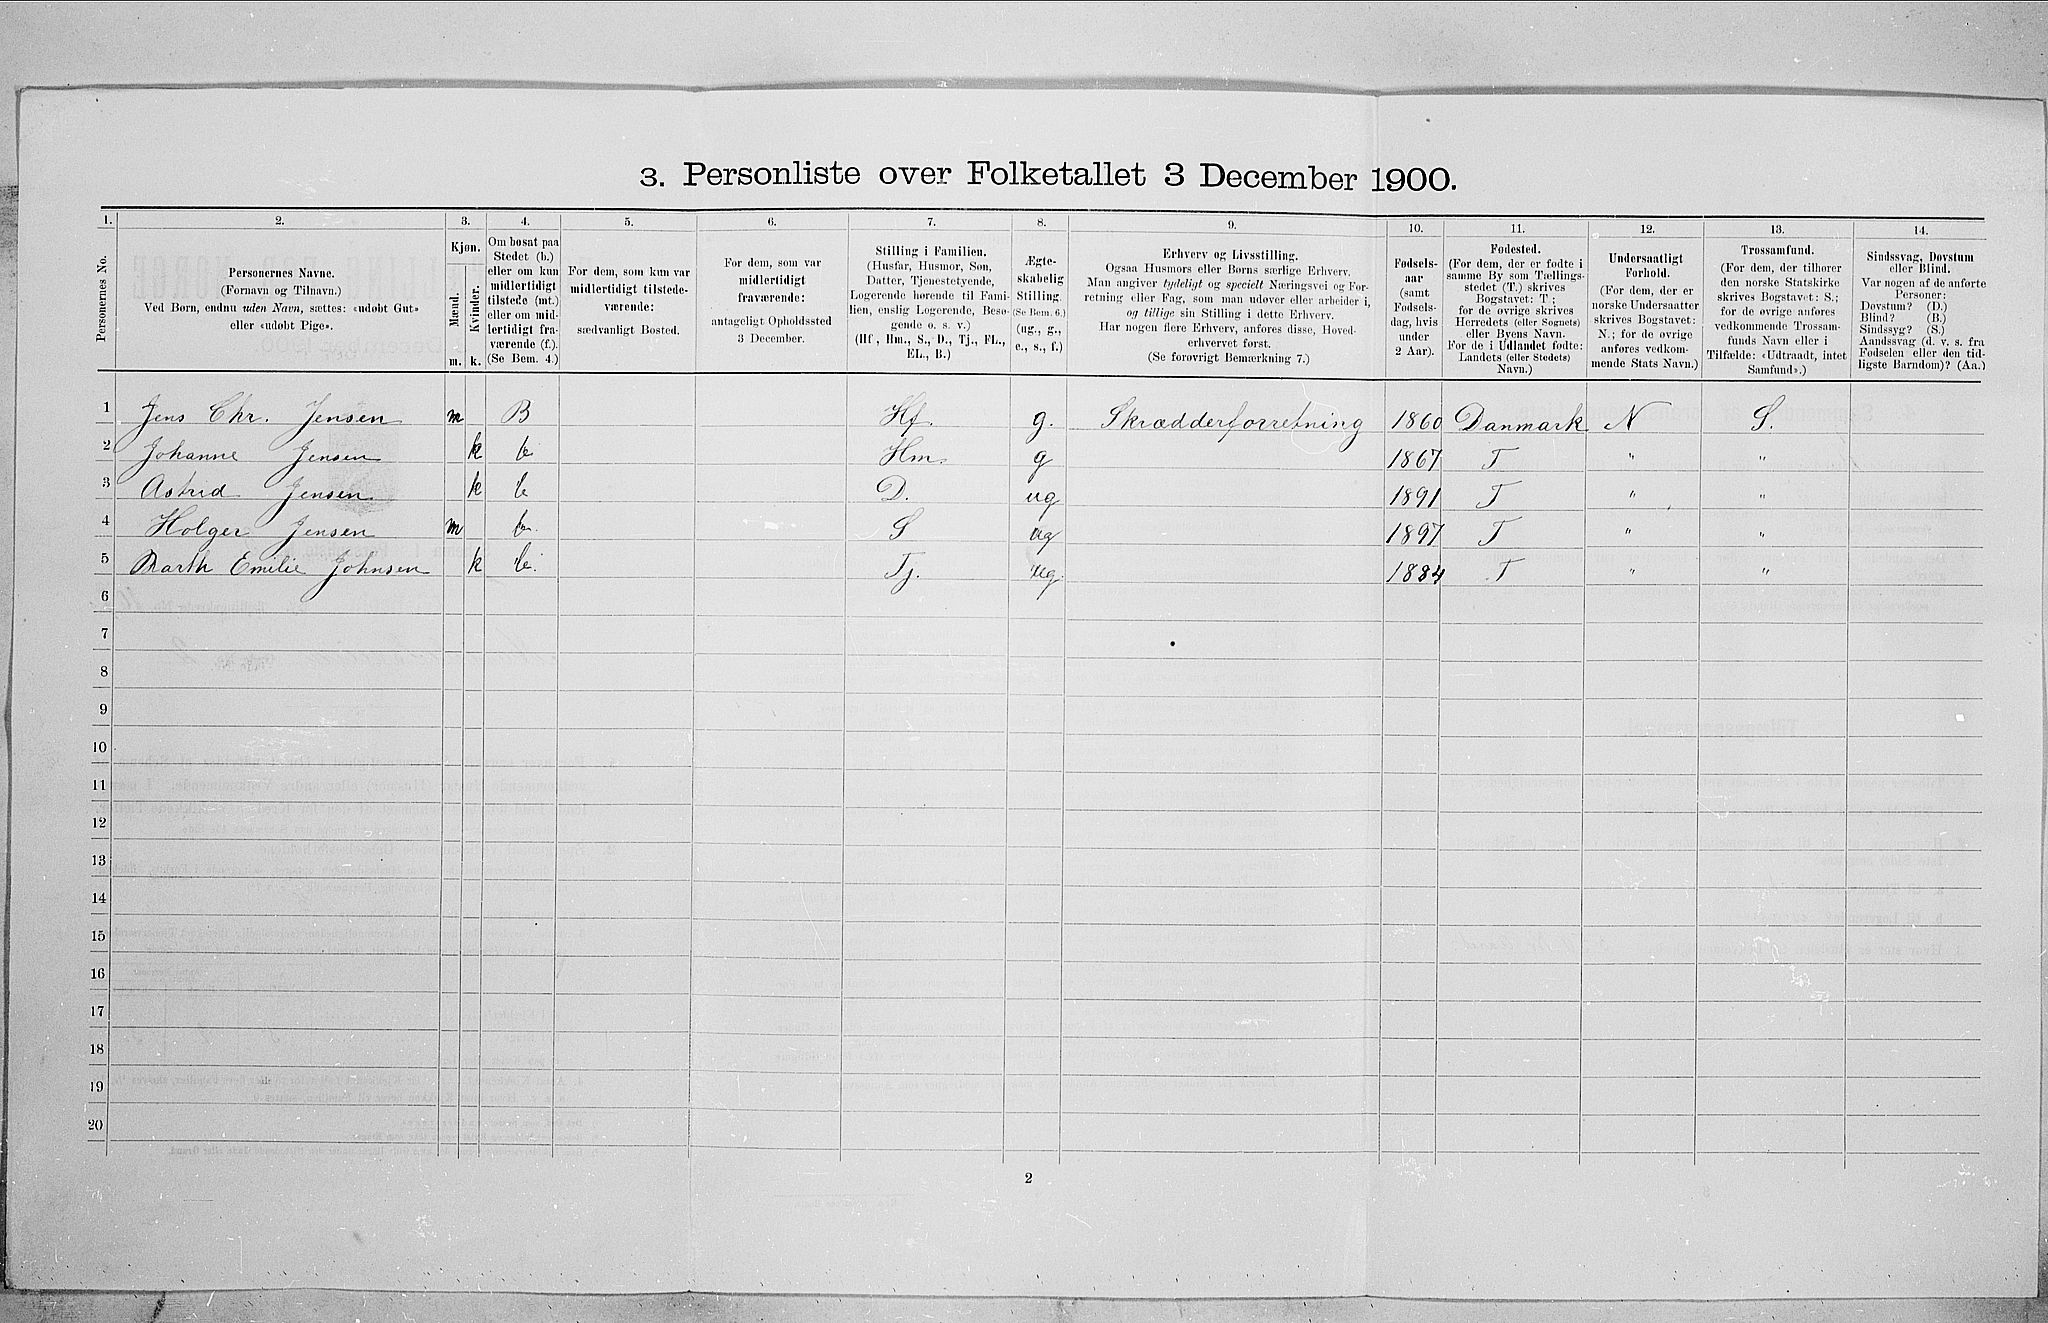 3. Personliste over Folketallet 3 December 1900.
1. 2. 3. 4. 5. 6. 7. 8. 9. 10. 11. 12. 13. 14.
Personernes No.
Personernes Navne.
(Fornavn og Tilnavn.)
Ved Børn, endnu uden Navn, sættes: «udøbt Gut»
eller «udøbt Pige».
Kjøn.
Mænd.
Kvinder.
m. k.
Om bosat paa
Stedet (b.)
eller om kun
midlertidigt
tilstede (mt.)
eller om mid-
lertidigt fra-
værende (f.).
(Se Bem. 4.)
For dem, som kun var
midlertidigt tilstede-
værende:
sædvanligt Bosted.
For dem, som var
midlertidigt
fraværende:
antageligt Opholdssted
3 December.
Stilling i Familien.
(Husfar, Husmor, Søn,
Datter, Tjenestetyende,
Logerende hørende til Fami-
lien, enslig Logerende, Besø-
gende o. s. v.)
(Hf, Hm., S., D., Tj., FL.,
EL., B.)
Ægte-
skabelig
Stilling.
(Se Bem. 6.)
(ug., g.,
e., s., f.)
Erhverv og Livsstilling.
Ogsaa Husmors eller Børns særlige Erhverv.
Man angiver tydeligt og specielt Næringsvei og For-
retning eller Fag, som man udøver eller arbeider i,
og tillige sin Stilling i dette Erhverv.
Har nogen flere Erhverv, anføres disse, Hoved-
erhvervet først.
(Se forøvrigt Bemærkning 7.)
Fødsels-
aar
(samt
Fødsels-
dag, hvis
under
2 Aar).
Fødested.
(For dem, der er fødte i
samme By som Tællings-
stedet (T.) skrives
Bogstavet: T;
for de øvrige skrives
Herredets (eller Sognets)
eller Byens Navn.
For de i Udlandet fødte:
Landets (eller Stedets)
Navn.)
Undersaatligt
Forhold.
(For dem, der er
norske Undersaatter
skrives Bogstavet:
N.; for de øvrige
anføres vedkom-
mende Stats Navn.)
Trossamfund.
(For dem, der tilhører
den norske Statskirke
skrives Bogstavet: S.;
for de øvrige anføres
vedkommende Trossam-
funds Navn eller i
Tilfælde: «Udtraadt, intet
Samfund».)
Sindssvag, Døvstum
eller Blind.
Var nogen af de anførte
Personer:
Døvstum? (D.)
Blind? (B.)
Sindssyg? (S.)
Aandssvag (d. v. s. fra
Fødselen eller den tid-
ligste Barndom)? (Aa.)
1 Jens Chr. Jensen m B Hf. g. Skrædderforretning 1860 Danmark N S.
2 Johanne Jensen k b Hm. g 1867 T " "
3 Astrid Jensen k b D. ug 1891 T " "
4 Holger Jensen m b. S ug 1897 T " "
5 Marth Emilie Johnsen k b. Tj. ug. 1884 T " "
6
7
8
9
10
11
12
13
14
15
16
17
18
19
20
2